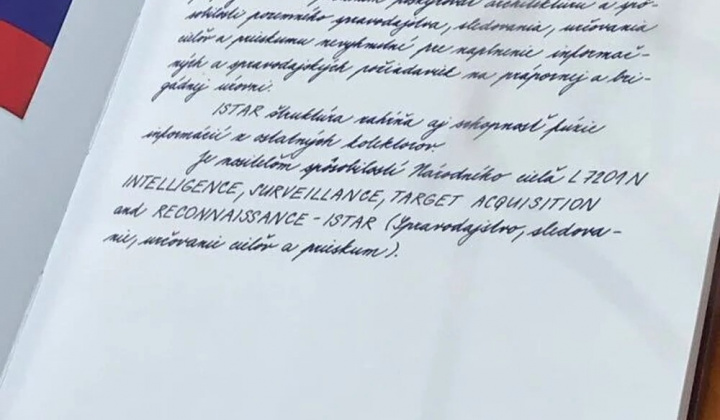 poskytovať architektúru a spô-
sobilosti pozemného spravodajstva, sledovania, určovania
cieľov a prieskumu nevyhnutné pre naplnenie informač-
ných a spravodajských požiadaviek na práporovej a bri-
gádnej úrovni.
ISTAR štruktúra zahŕňa aj schopnosť fúzie
informácií z ostatných kolektorov.
Je nositeľom spôsobilosti Národného cieľa L7201N
INTELLIGENCE, SURVEILLANCE, TARGET ACQUISITION
and RECONNAISSANCE - ISTAR (Spravodajstvo, sledova-
nie, určovanie cieľov a prieskum).